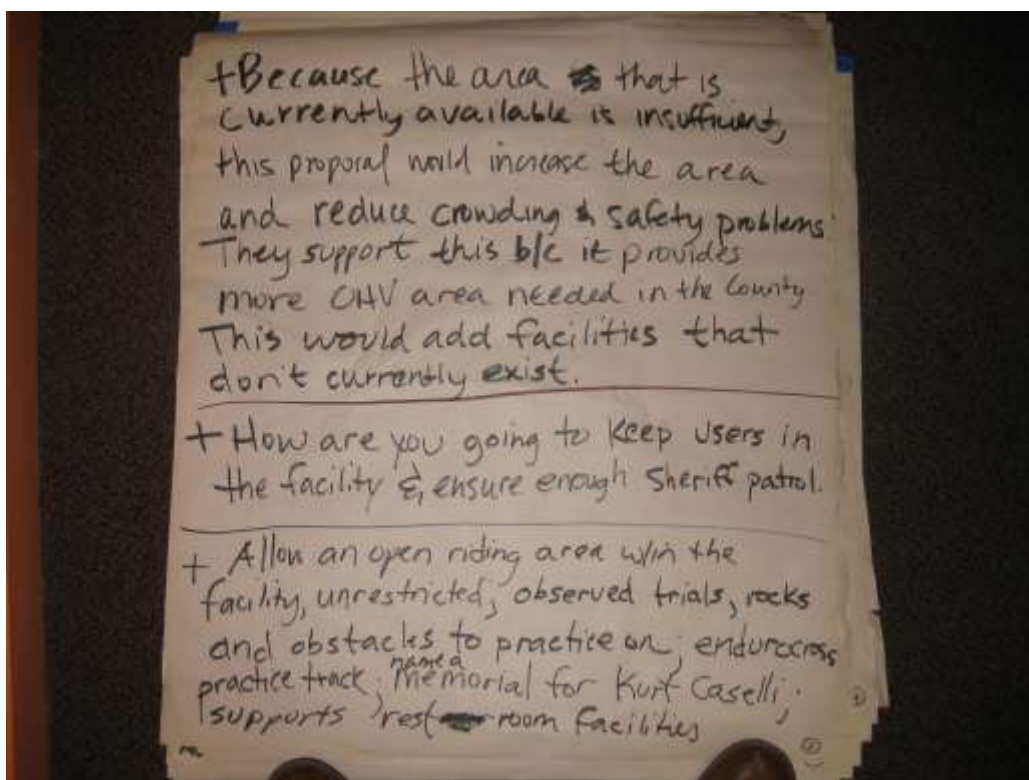 +Because the area that is
currently available is insufficient,
this proporal would increase the area
and reduce crowding & safety problems.
They support this b/c it provides
more OHV area needed in the County.
This would add facilities that
don't currently exist.
+ How are you going to keep users in
the facility & ensure enough Sheriff patrol.
+ Allow an open riding area w/in the
facility, unrestricted; observed trials, rocks
and obstacks to practice on; endurocross
practice track; name a memorial for Kurt Caselli;
supports rest room facilities